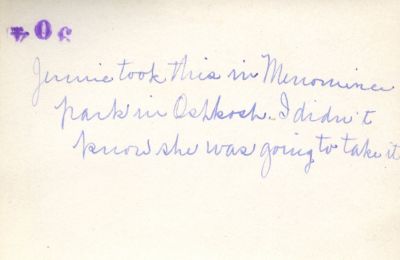 304
Jennie took this in Menominee
park in Oshkosh. I didn't
know she was going to take it